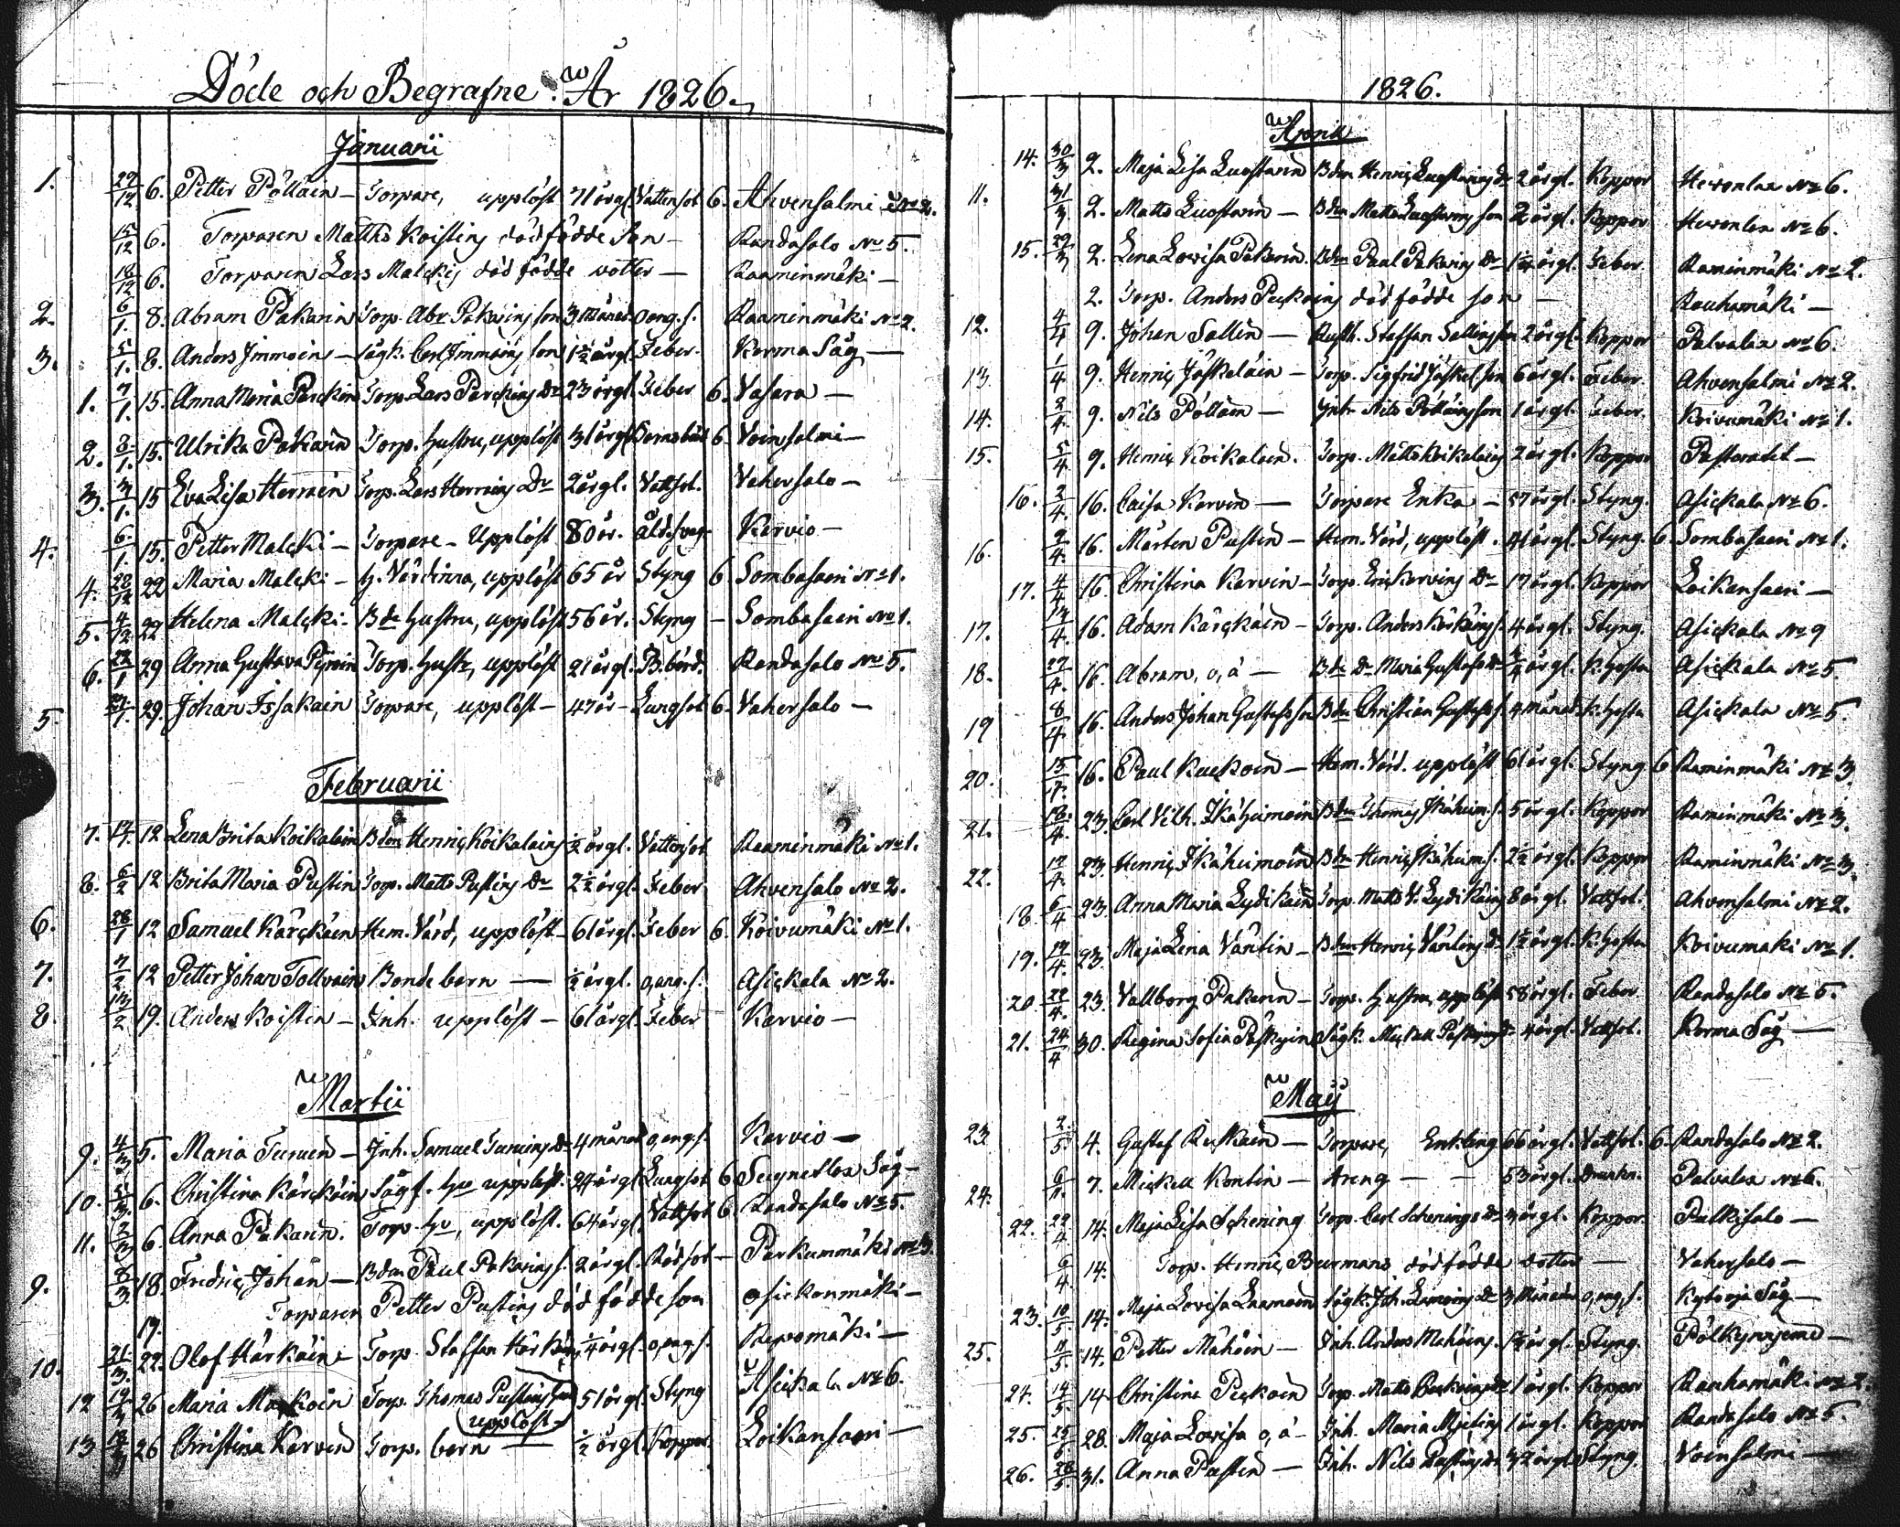 Döde och Begrafne År 1826.
Januarii
1. 29/12 6. Petter Pölläin – Torpare, upplöst 71 årgl Vattensot 6. Ahvensalmi № 2.
15/12 6. Torparen Matths Koistins dödfödde Son – Randasalo № 5.
18/12 6. Torparen Lars Malckis död födde dotter – Raaminmäki –
2. 6/1. 8. Abram Pakarin Torp. Abr. Pakarins son 3 månad. o ang. s. Raaminmäki № 2.
3. 5/1. 8. Anders Immoin – Sågk. Carl Immoins son 1½ årgl. Feber. Kerma Såg –
1. 7/1. 15. Anna Maria Parckin Torp. Lars Parckins Dr 23 årgl. Feber 6. Vasara –
2. 8/1. 15. Ulrika Pakarin Torp. hustru, upplöst 31 årgl Barnsbörd 6. Voinsalmi –
3. 3/1. 15 Eva Lisa Herrain Torp. Lars Herrains Dr 2 årgl. Vattsot. Vahersalo –
4. 6/1. 15. Petter Malcki – Torpare – Upplöst 80 år. Åld.svag. Kervio –
4. 22 Maria Malcki – h. Värdinna, upplöst 65 år Styng 6. Sombasaari № 1.
5. 22 Helena Malcki – Bde hustru, upplöst 56 år. Styng – Sombasaari № 1.
6. 29 Anna Gustava Torp. hustr., upplöst 21 årgl. B.börd. Randasalo № 5.
5. 29. Johan Issakain Torpare, upplöst – 47 år – Lungsot 6. Vahersalo –
Februarii
7. 12 Lena Brita Koikalain Bden Henric Koikalains ½ årgl. Vattensot Raaminmäki № 1.
8. 6/2 12 Brita Maria Pustin Torp. Matts Pustins Dr 2½ årgl. Feber Ahvensalo № 2.
6. 28/1 12 Samuel Kärckäin Hem. Värd, upplöst – 61 årgl. Feber 6. Koivumäki № 1.
7. 7/2 12 Petter Johan Tollvain Bonde barn – ½ årgl. o, ang. s. Asickala № 2.
8. 19. Anders Koistin – Inh. upplöst – 61 årgl. Feber Kervio –
Martii
9. 4/3 5. Maria Turuin – Inh. Samuel Turuins Dr 4 månad o, ang. s. Kervio –
10. 6. Christina Kärckäin Sågf. hu upplöst. 24 årgl Lungsot 6 Såg –
11. 2/3 6. Anna Pakarin. Torp. hu, upplöst. 64 årgl. Vattsot 6. Randasalo № 5.
9. 8/3. 18. Fredric Johan – Bden Paul Pakarins s. 2 årgl. Rödsot – Parkummäki № 3.
19. Torparen Petter Pustins död födde son Asickonmäki –
10. 21/3. 22. Olof Härkäin – Torp. Staffan ¼ årgl. o, ang. s. Repomäki –
12 19/3 26 Maria Torp. Thomas Pustins 51 årgl. Styng Asickala № 6.
upplöst –
13 26 Christina Kervin Torp. barn – ½ årgl. Koppor. Loikansaari –
1826.
April
14. 30/3 2. Maja Lisa Luostarin Bden Henric Luostarins Dr 2 årgl. Koppor № 6.
11. 31/3 2. Matts Luostarin – Bden Matts Luostarins son 2 årgl. Koppor № 6.
15. 29/3 2. Lena Lovisa Pakarin. Bden Paul Pakarins Dr årgl. Feber. Raminmäki № 2.
2. Torp. Anders dödfödde son – Rauhamäki –
12. 4/4 9. Johan Sallin – Rusth. Staffan Sallins son 2 årgl. Koppor Palvalax № 6.
13. 1/4 9. Henric Jäskeläin – Torp. Sigfrid Jäskel. son 6 årgl. Feber. Ahvensalmi № 2.
14. 2/4. 9. Nils Pölläin – Inh. Nils Pölläins son 1 årgl. Feber. Koivumäki № 1.
15. 5/4 9. Henric Koikalain. Torp. Matts Koikalains 2 årgl. Koppor Pastoratet –
16. 2/4. 16. Caisa Kervin – Torpare Enka – 57 årgl. Styng. Asickala № 6.
16. 16. Mårten Pustin – Hem. Värd, upplöst. 41 årgl. Styng. 6. Sombasaari № 1.
17. 4/4 16. Christina Kervin – Torp. Eric Kervins Dr 17 årgl. Koppor Loikansaari –
17. 16. Adam Kärckäin – Torp. Anders Kärkäins s. 4 årgl. Styng. Asickala № 9
18. 16. Abram, o, ä – Bde Dr Maria Gustafs Dr årgl. K.hosta Asickala № 5.
19 8/4 16. Anders Johan Gustafsson Bden Christian Gustafs s. 4 månad. K.hosta Asickala № 5.
20. 16. Paul Kuckoin – Hem. Värd. upplöst 61 årgl. Styng 6 Raminmäki № 3.
21. 23. Carl Vilh. Ikäheimoin Bden Thomas Ikäheim. s. 5 årgl. Koppor Raminmäki № 3.
22. 23. Henric Ikäheimoin Bden Henric Ikäheim. s. 2½ årgl. Koppor Raminmäki № 3.
18. 23. Anna Maria Lydikäin Torp. Matts Lydikäins 8 årgl. Vattsot. Ahvensalmi № 2.
19. 23. Maja Lena Väntin – Bden Henric Väntins Dr 1½ årgl. K.hosta Koivumäki № 1.
20 22/4. 23. Vallborg Pakarin – Torp. hustru, upplöst 58 årgl. Feber Randasalo № 5.
21. 24/4 30. Regina Sofia Sågk. Dr 4 årgl. Vattsot. Kerma Såg –
Maij
23. 2/5 4. Gustaf – Torpare, Enkling 66 årgl. Vattsot. 6. Randasalo № 2.
24. 7. Mickel Kontin – Dreng – – 53 årgl. Drunkn. Palvalax № 6.
22. 14. Maja Lisa Schening Torp. Carl Schenings Dr 3 årgl. Koppor. Pulkisalo –
14. Torp. Henric Burmans dödfödde dotter – Vahersalo –
23. 10/5. 14. Maja Lovisa Sågk. Joh. Dr 3 Månader o, ang. s. Såg –
25. 11/5. 14. Petter Mähöin – Inh. Anders Mähöins. årgl. Styng.
24. 14/5. 14 Christina Torp. Matts Dr 1 årgl. Koppor Rauhamäki № 2.
25. 28. Maja Lovisa o, ä – Inh. Maria 1 årgl. Koppor Randasalo № 5.
26. 28/5. 31. Anna Pustin – Inh. Nils Pustins Dr 32 årgl. Styng. Voinsalmi –